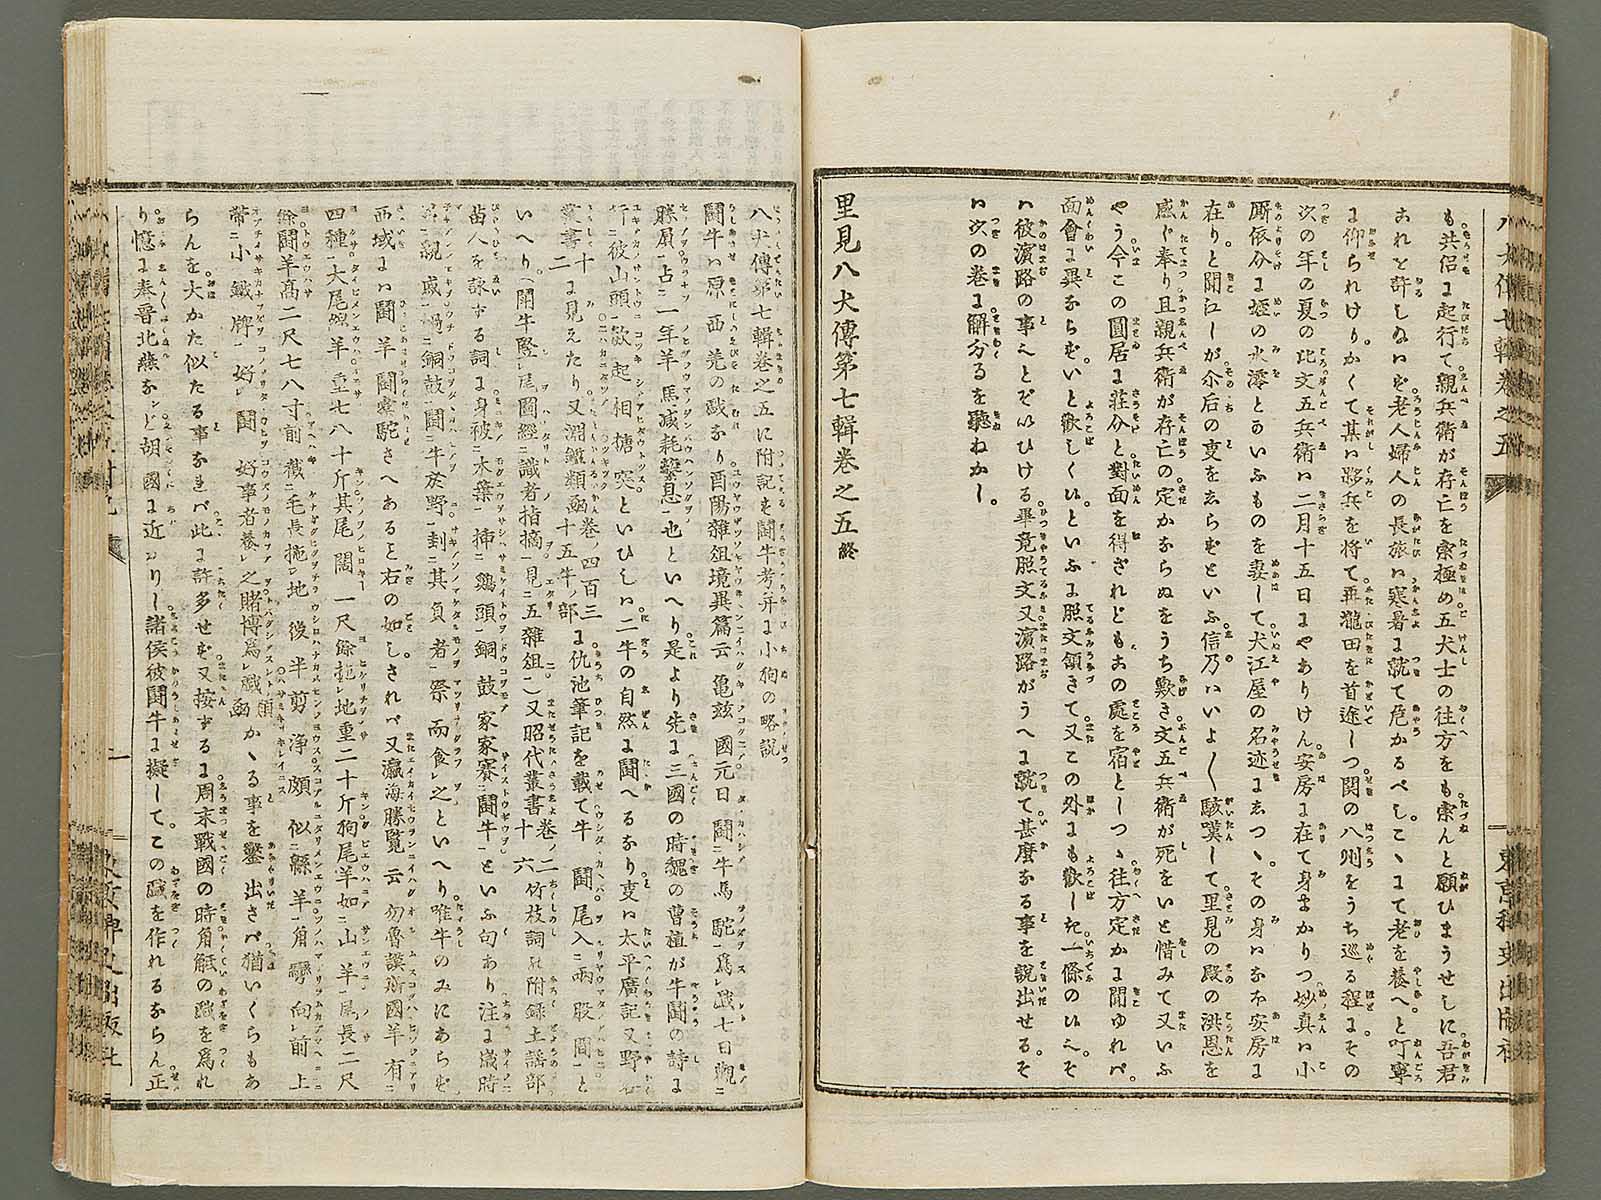 も共侶に起行て親兵衛が存亡を索極め五犬士の往方をも索んと願ひまうせしに吾君
あれを許し給はず老人婦人の長旅は寒暑に就て危かるべしこゝにて老を養へと叮寧
に仰られけりかくて某は夥兵を将て再瀧田を首途しつ関の八州をうち巡る程にその
次の年の夏の比文五兵衛は二月十五日にやありけん安房に在て身まかりつ妙真は小
厮依介に蜑の水澪とかいふものを妻して犬江屋の名迹にゑつゝその身はなほ安房に
在りと聞江しが尒后の叓をゑらずといふ信乃はいよ〳〵駭嘆して里見の殿の洪恩を
感じ奉り且親兵衛が存亡の定かならぬをうち歎き文五兵衛が死をいと惜みて又いふ
やう今この圓居に荘介と對面を得ざれどもあの處を宿としつゝ往方定かに聞ゆれば
面會に異ならずいと歡しくはといふに照文領きて又この外にも歡しき一條のはへそ
は彼濱路の事へとぞいひける畢竟照文又濱路がうへに就て甚麼なる事を説出せるそ
は次の巻に解分るを聽ねかし
里見八犬傳第七輯巻之五終
八犬傳第七輯巻之五
東京稗史出版社
八犬傳第七輯巻之五に附記す鬪牛考并に小狗の略説
鬪牛は原西羌の戯なり酉陽雜俎境異篇云亀玆國元日鬪牛馬駝爲戯七日觀
勝屓占一年羊馬减耗蘩息也といへり是より先に三國の時魏の曹植が牛鬪の詩に
行彼山頭歘起相搪突といひしは二牛の自然に鬪へるなり叓は太平廣記又野客
叢書十二に見えたり又淵鑑類函巻ノ四百三十五牛ノ部に仇池筆記を載て牛鬪尾入兩股間と
いへり鬪牛竪尾圖經識者指摘見五雜俎又昭代叢書十六巻ノ二竹枝詞の附録土謠部
苗人を詠ずる詞に身被木葉挿鷄頭銅鼓家家賽鬪牛といふ句あり注に歳時
召親戚撾銅鼓鬪牛於野刲其負者祭而食之といへり唯牛のみにあらず
西域には鬪羊鬪槖駝さへあると右の如しされば又瀛海勝覽云勿魯謨斯國羊有
四種大尾緜羊重七八十斤其尾闊一尺餘拖地重二十斤狗尾羊如山羊尾長二尺
餘鬪羊髙二尺七八寸前截毛長拖地後半剪浄頗似緜羊角彎向前上
帶小鐵牌好鬪好事者養之賭博爲戯類函かゝる事を鑿出さば猶いくらもあ
らんを大かた似たる事なればは此に許多せず又按ずるに周末戰國の時角觝の戯を爲れ
り憶に秦晋北燕など胡國に近かりし諸侯彼鬪牛に擬してこの戯を作れるならん正